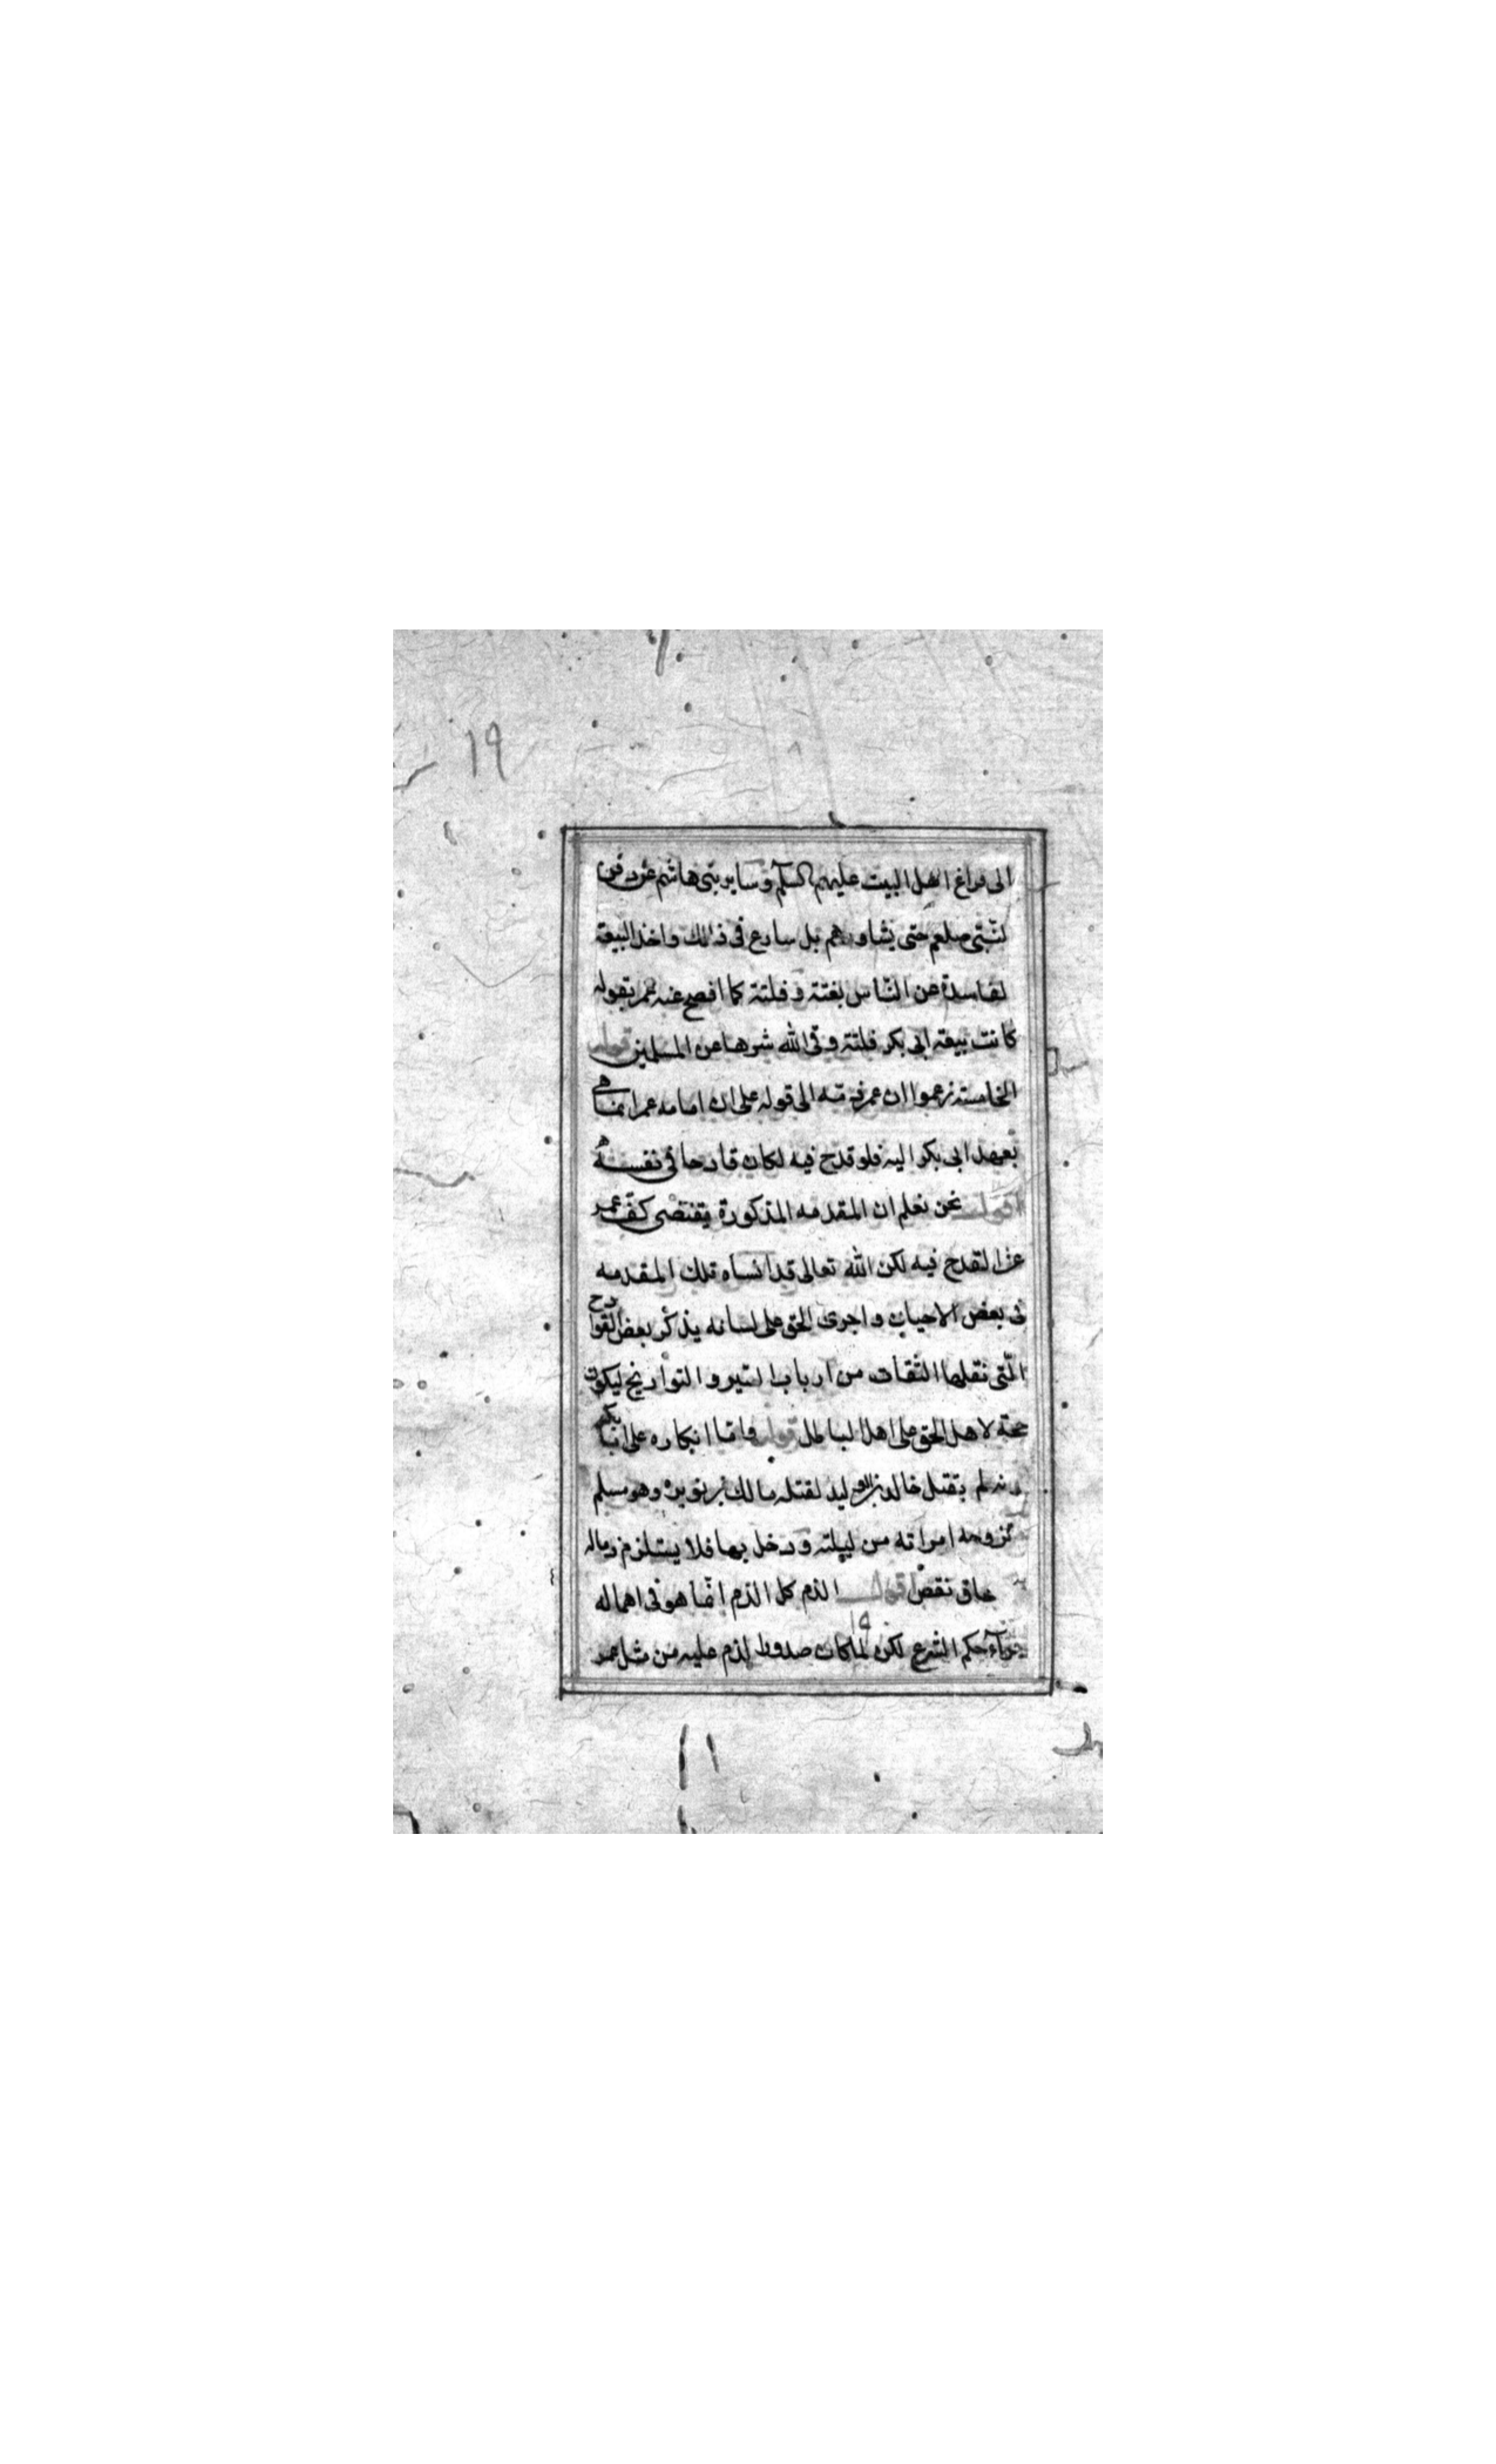 ١٩
الى فراغ اهل البيت عليهم السلم و ساير بنى هاشم عن دفن
لنبى صلعم حتى يشاورهم بل سارع فى ذلك و اخذ البيعة
لفاسدة عن الناس بغتة و فلتة كما افصح عنه عمر بقوله
كانت بيعة ابى بكر فلتة وقى الله شرها عن المسلمين قوله
الخامسة زعموا ان عمر ذمه الى قوله على ان امامه عمر انما هى
بعهد ابى بكر اليه فلو قدح فيه لكان قادحا فى نفسه
اقول نحن نعلم ان المقدمه المذكورة يقتضى كف عمر
عن القدح فيه لكن الله تعالى قد انساه تلك المقدمه
فى بعض الاحيان و اجرى الحق على لسانه يذكر بعض القوادح
التى نقلها الثقات من ارباب السير و التواريخ ليكون
حجة لاهل الحق على اهل الباطل قوله و اما انكاره على ابى بكر
نه لم يقتل خالد بن الوليد لقتله مالك بن نويرة و هو مسلم
تزوجه امراته من ليلته و دخل بها فلا يستلزم ذماله
حاق نقص اقول الذم كل الذم انما هو فى اهماله
جراء حكم الشرع لكن لما كان صدور الذم عليه من مثل عمر
١٩